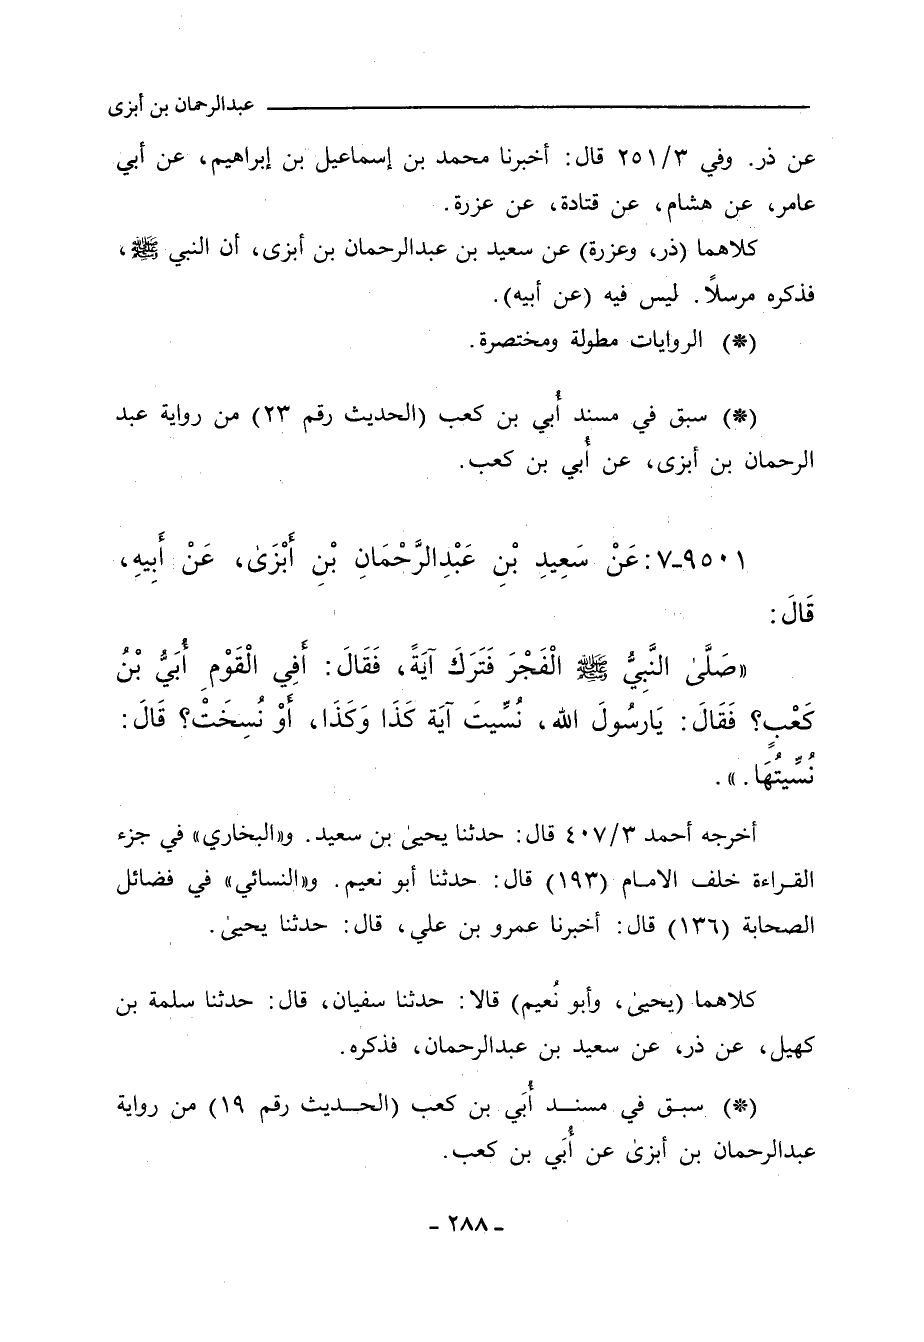 عبدالرحمان بن أبزى
عن ذر. وفي ٢٥١/٣ قال: أخبرنا محمد بن إسماعيل بن إبراهيم، عن أبي
عامر، عن هشام، عن قتادة، عن عزرة.
كلاهما (ذر، وعزرة) عن سعيد بن عبدالرحمان بن أبزى، أن النبي ﷺ،
فذكره مرسلًا. ليس فيه (عن أبيه).
(*) الروايات مطولة ومختصرة.
(*) سبق في مسند أُبي بن كعب (الحديث رقم ٢٣) من رواية عبد
الرحمان بن أبزى، عن أُبي بن كعب.
٩٥٠١-٧: عَنْ سَعِيدِ بْنِ عَبْدِالرَّحْمَانِ بْنِ أَبْزَىٰ، عَنْ أَبِيهِ،
قَالَ:
«صَلَّىٰ النَّبِيُّ ﷺ الْفَجْرَ فَتَرَكَ آيَةً، فَقَالَ: أَفِي الْقَوْمِ أُبَيُّ بْنُ
كَعْبٍ؟ فَقَالَ: يَارَسُولَ الله، نُسِّيتَ آيَة كَذَا وَكَذَا، أَوْ نُسِخَتْ؟ قَالَ:
نُسِّيتُهَا.».
أخرجه أحمد ٤٠٧/٣ قال: حدثنا يحيىٰ بن سعيد. و«البخاري» في جزء
القراءة خلف الامام (١٩٣) قال: حدثنا أبو نعيم. و«النسائي» في فضائل
الصحابة (١٣٦) قال: أخبرنا عمرو بن علي، قال: حدثنا يحيىٰ.
كلاهما (يحيىٰ، وأبو نُعيم) قالا: حدثنا سفيان، قال: حدثنا سلمة بن
كهيل، عن ذر، عن سعيد بن عبدالرحمان، فذكره.
(*) سبق في مسند أُبَي بن كعب (الحديث رقم ١٩) من رواية
عبدالرحمان بن أبزىٰ عن أُبَي بن كعب.
- ٢٨٨ -